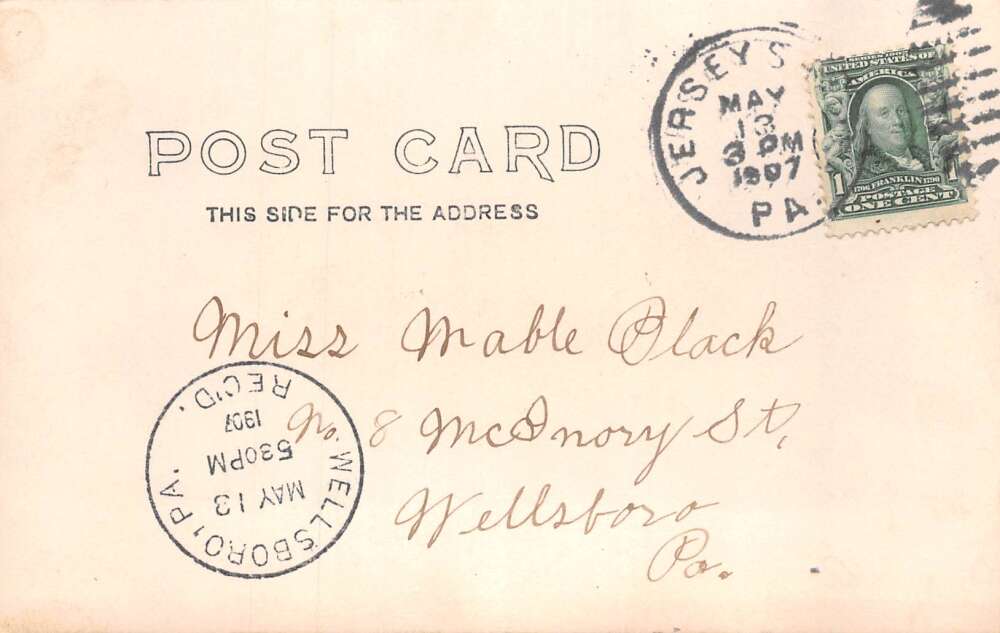 POST CARD
THIS SIDE FOR THE ADDRESS
JERSEY S
MAY
13
3 PM
1907
PA.
SERIES 1902
UNITED STATES OF
AMERICA
1 1
1706 FRANKLIN 1790
POSTAGE
ONE CENT
Miss Mable Black
No. 8 McInory St,
Wellsboro
Pa.
WELLSBORO, PA.
MAY 13
530PM
1907
REC'D.